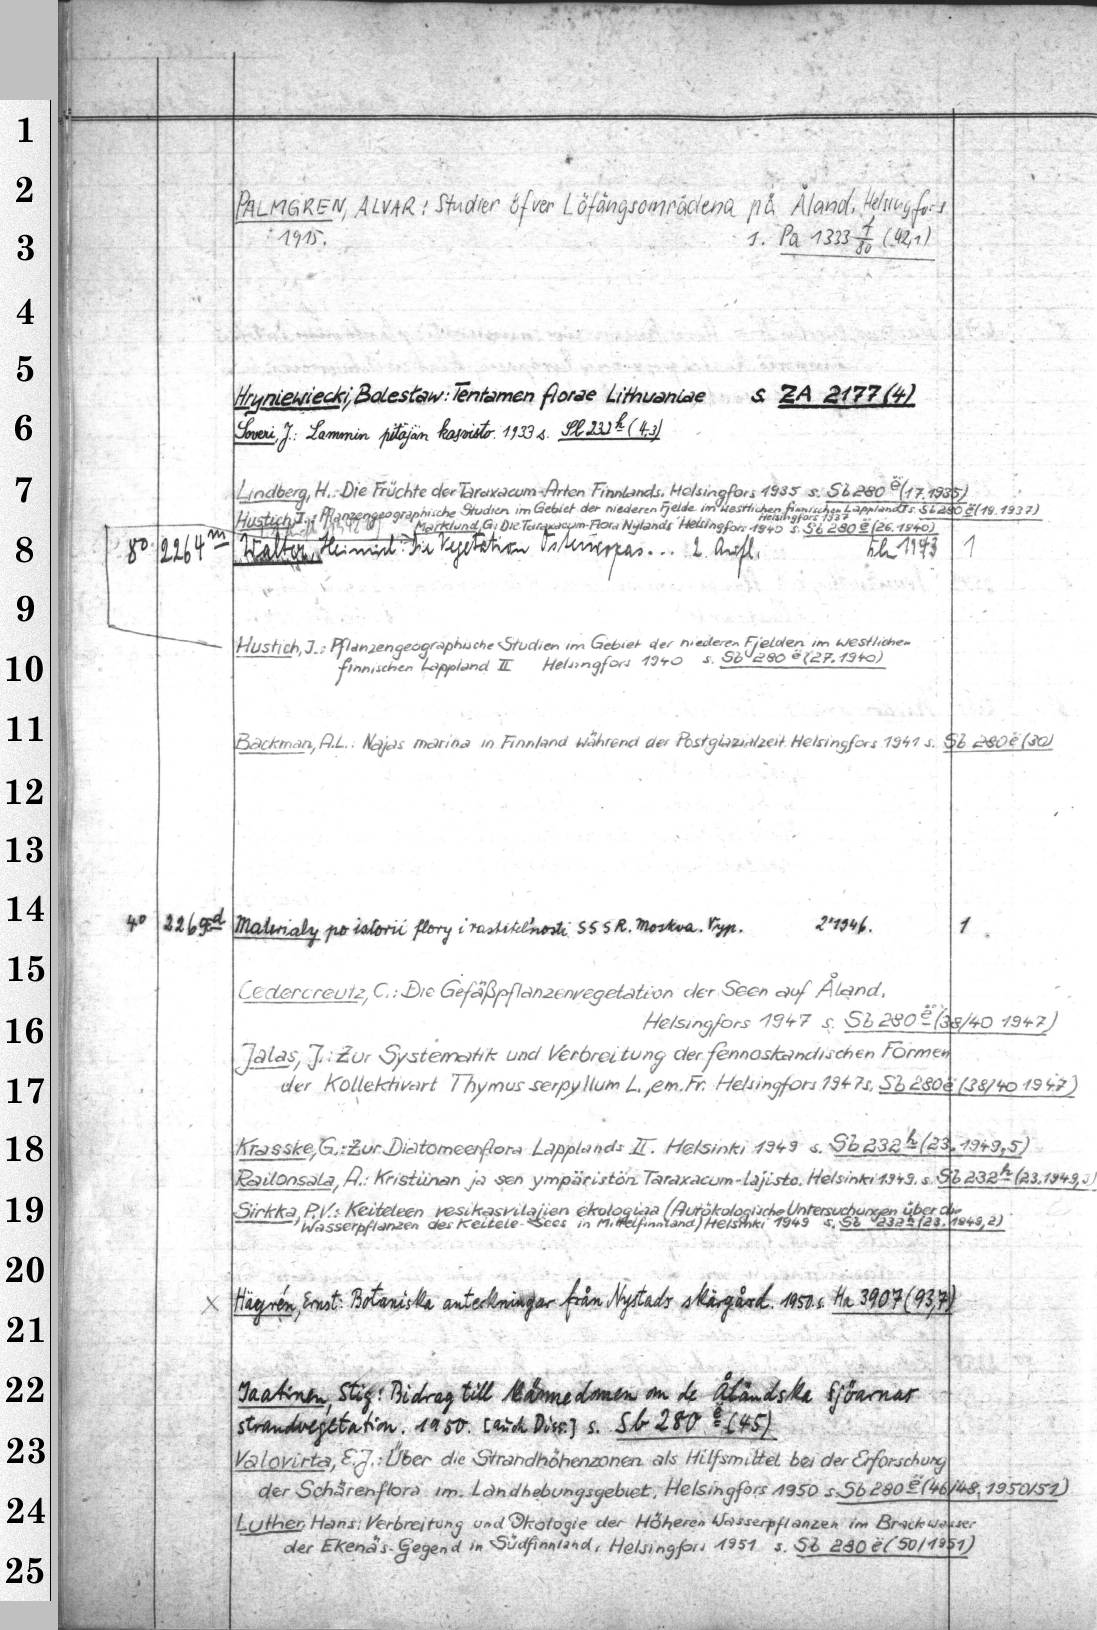 PALMGREN, ALVAR: Studier öfver Löfängsområdena på Åland. Helsingfors
1915. 1. Pa 1333 f/80 (42,1)
Hryniewiecki, Bolesław: Tentamen florae Lithuaniae s. ZA 2177 (4)
Soveri, J.: Lammin pitäjän kasvisto. 1933 s. Sb 232 h (4,3)
Lindberg, H.: Die Früchte der Taraxacum-Arten Finnlands. Helsingfors 1935 s. Sb 280 ë (17.1935)
Hustich, J.: Pflanzengeographische Studien im Gebiet der niederen Fjelde im westlichen finnischen Lappland I s. Sb 280 ë (19.1937)
Helsingfors 1937
Marklund, G.: Die Taraxacum-Flora Nylands Helsingfors 1940 s. Sb 280 ë (26.1940)
8° 2264 m Walter, Heinrich: Die Vegetation Osteuropas... 2. Aufl. 1943 1
Hustich, J.: Pflanzengeographische Studien im Gebiet der niederen Fjelden im westlichen
finnischen Lappland II Helsingfors 1940 s. Sb 280 ë (27.1940)
Backman, A.L.: Najas marina in Finnland während der Postglazialzeit. Helsingfors 1941 s. Sb 280 ë (30)
4° 2269 d Materialy po istorii flory i rastitel'nosti SSSR. Moskva. Vyp. 2 1946. 1
Cedercreutz, C.: Die Gefäßpflanzenvegetation der Seen auf Åland.
Helsingfors 1947 s. Sb 280 ë (38/40 1947)
Jalas, J.: Zur Systematik und Verbreitung der fennoskandischen Formen
der Kollektivart Thymus serpyllum L., em. Fr. Helsingfors 1947 s. Sb 280 ë (38/40 1947)
Krasske, G.: Zur Diatomeenflora Lapplands II. Helsinki 1949 s. Sb 232 h (23. 1949,5)
Railonsala, A.: Kristiinan ja sen ympäristön Taraxacum-lajisto. Helsinki 1949. s. Sb 232 h (23.1949,3)
Sirkka, P.V.: Keiteleen vesikasvilajien ekologiaa (Autökologische Untersuchungen über die
Wasserpflanzen des Keitele-Sees in Mittelfinnland) Helsinki 1949 s. Sb 232 h (23. 1949,2)
X Häyrén, Ernst: Botaniska anteckningar från Nystads skärgård. 1950. s. Ha 3907 (93,7)
Jaatinen, Stig: Bidrag till kännedomen om de Åländska sjöarnas
strandvegetation. 1950. [auch Diss.] s. Sb 280 ë (45)
Valovirta, E.J.: Über die Strandhöhenzonen als Hilfsmittel bei der Erforschung
der Schärenflora im Landhebungsgebiet. Helsingfors 1950 s. Sb 280 ë (46/48, 1950/51)
Luther, Hans: Verbreitung und Ökologie der Höheren Wasserpflanzen im Brackwasser
der Ekenäs-Gegend in Südfinnland. Helsingfors 1951 s. Sb 280 ë (50/1951)
1
2
3
4
5
6
7
8
9
10
11
12
13
14
15
16
17
18
19
20
21
22
23
24
25